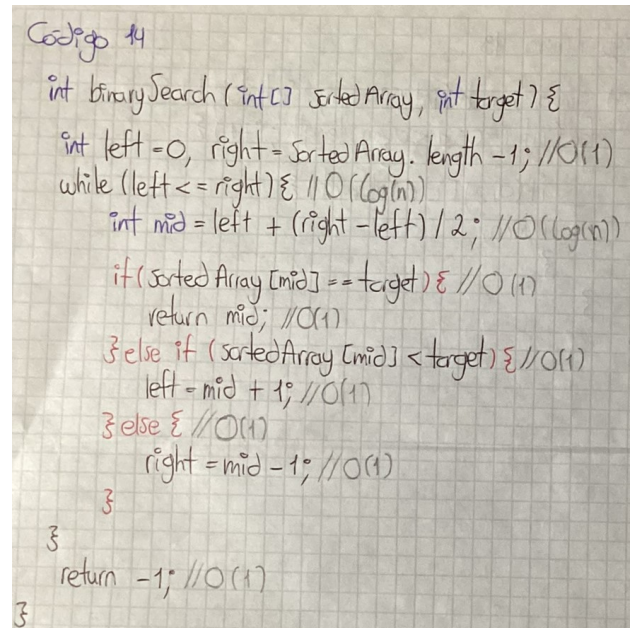 Código 14
int binarySearch (int[] sortedArray, int target) {
int left = 0, right = sortedArray. length - 1; //O(1)
while (left <= right) { //O(log(n))
int mid = left + (right - left) / 2; //O(log(n))
if (sortedArray [mid] == target) { //O(1)
return mid; //O(1)
} else if (sortedArray [mid] < target) { //O(1)
left = mid + 1; //O(1)
} else { //O(1)
right = mid - 1; //O(1)
}
}
return -1; //O(1)
}